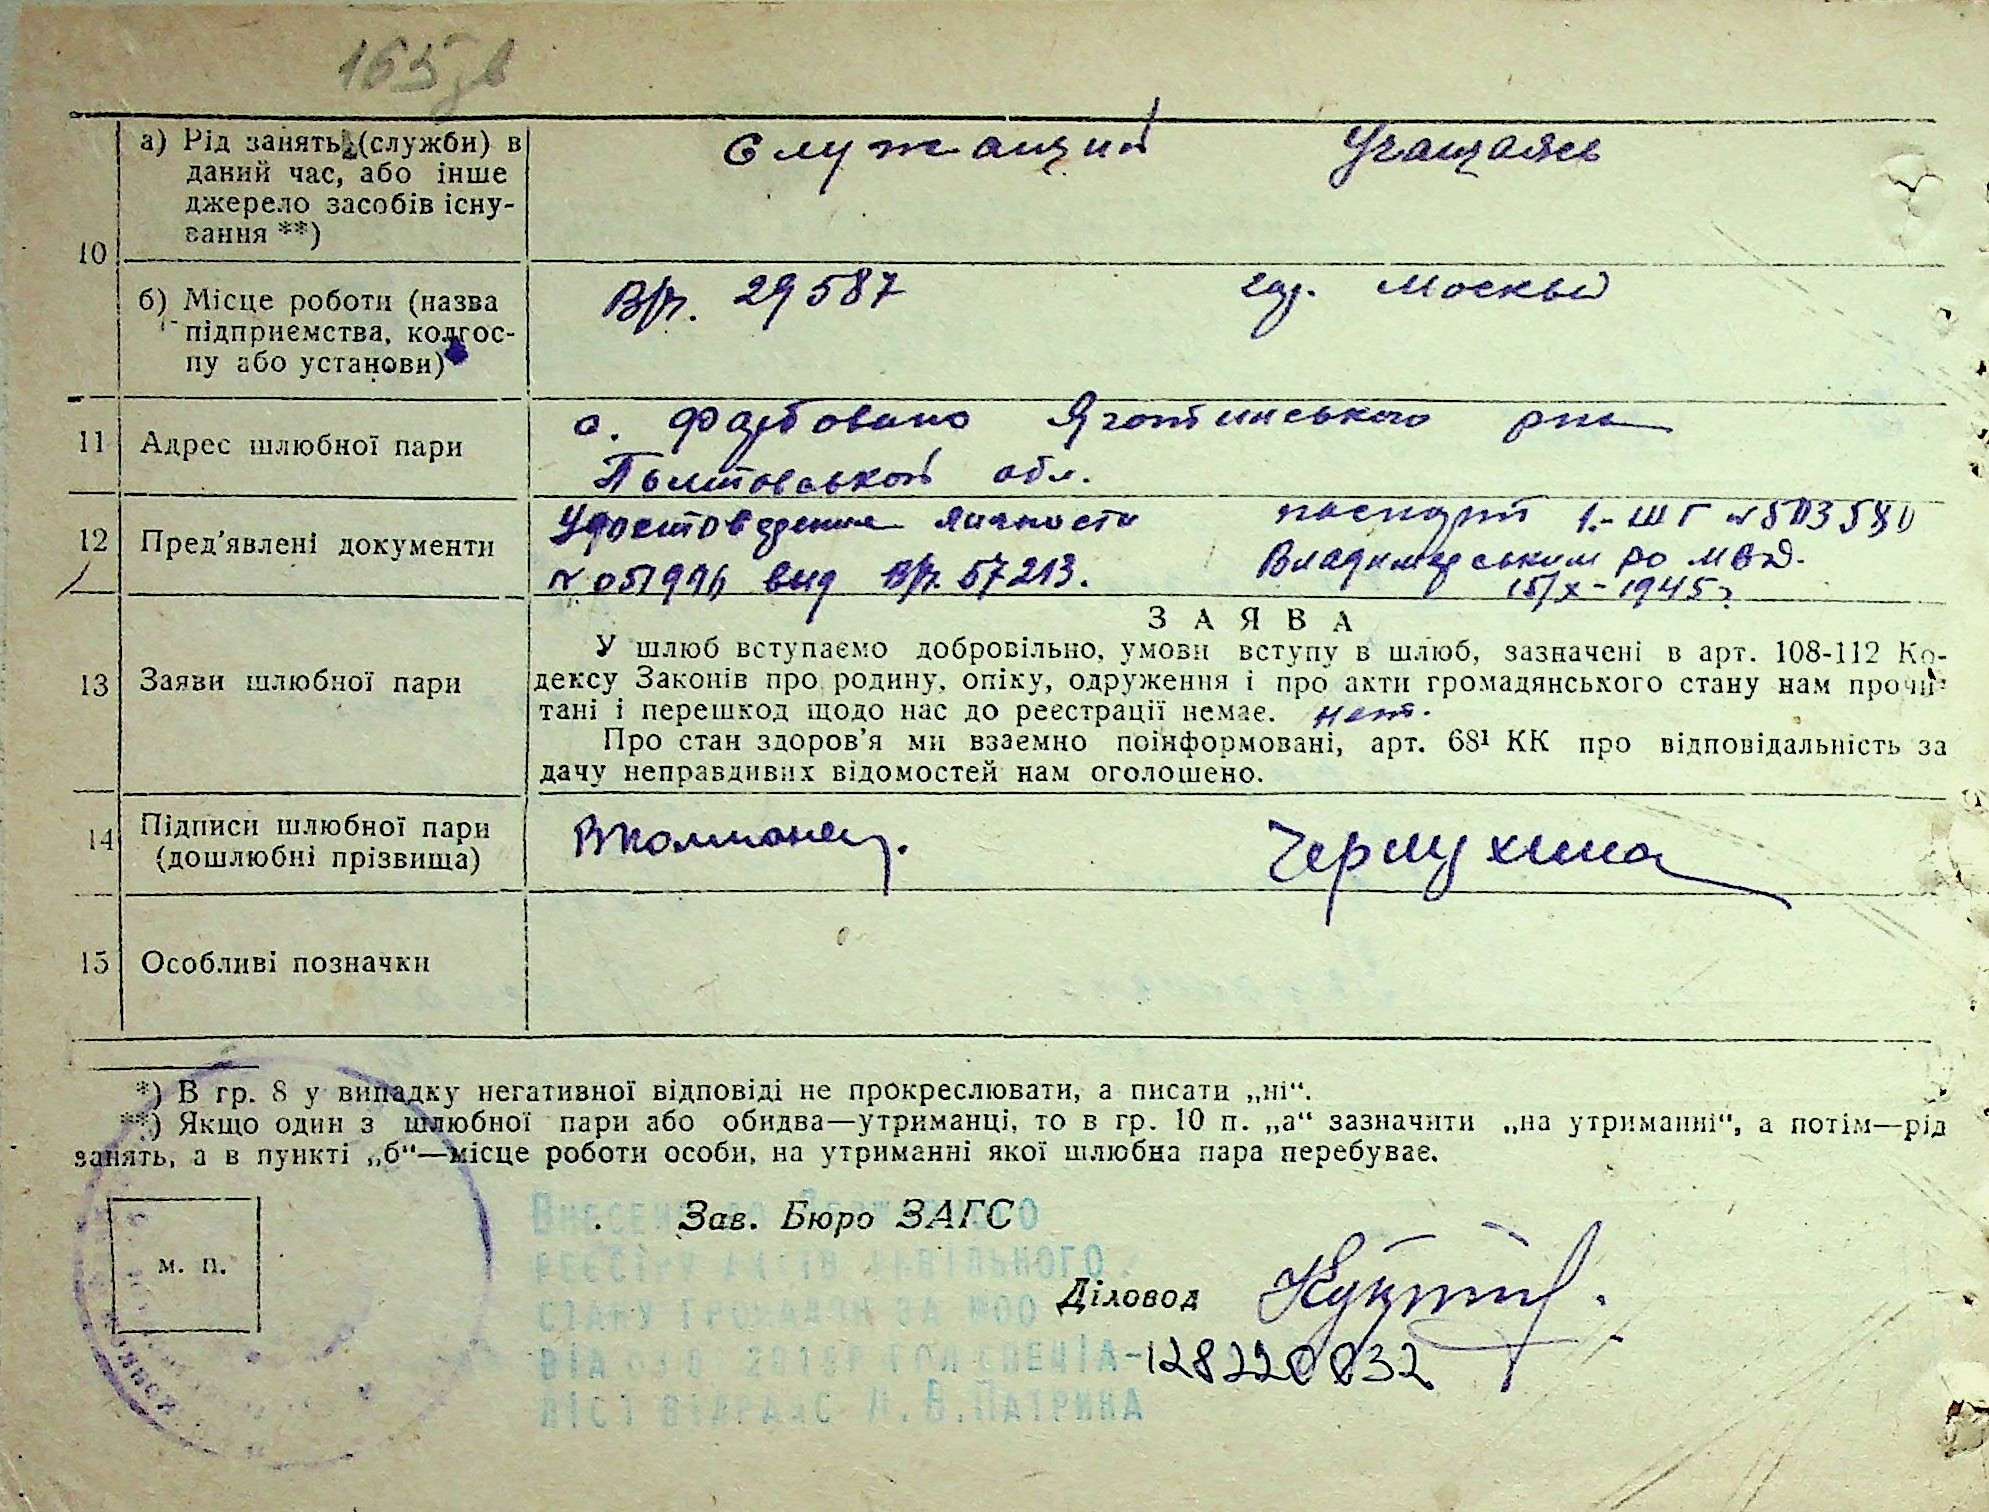 165 зв
а) Рід занять (служби) в
даний час, або інше
джерело засобів існу-
вання **)
Служащий Учащаясь
10
б) Місце роботи (назва
підприємства, колгос-
пу або установи)
В/ч. 29587 гор. Москвы
11 Адрес шлюбної пари
с. Фарбовано Яготинського р-на
Полтовської обл.
12 Пред’явлені документи
Удостоверение личности паспорт
вид В/ч. 57213. Владимирським РО МВД.
15/X-1945 г
13 Заяви шлюбної пари
ЗАЯВА
У шлюб вступаємо добровільно, умови вступу в шлюб, зазначені в арт. 108-112 Ко-
дексу Законів про родину, опіку, одруження і про акти громадянського стану нам прочи-
тані і перешкод щодо нас до реєстрації немає. нет.
Про стан здоров’я ми взаємно поінформовані, арт. 68¹ КК про відповідальність за
дачу неправдивих відомостей нам оголошено.
14 Підписи шлюбної пари
(дошлюбні прізвища)
Чермухина
15 Особливі позначки
*) В гр. 8 у випадку негативної відповіді не прокреслювати, а писати „ні“.
**) Якщо один з шлюбної пари або обидва—утриманці, то в гр. 10 п. „а“ зазначити „на утриманні“, а потім—рід
занять, а в пункті „б“—місце роботи особи, на утриманні якої шлюбна пара перебуває.
м. п.
Зав. Бюро ЗАГС
Внесено до Державного
реєстру актів цивільного
стану громадян за №00
Діловод
128220032
від 2018р гол спеціа-
ліст відрацс Л.В.Патрина